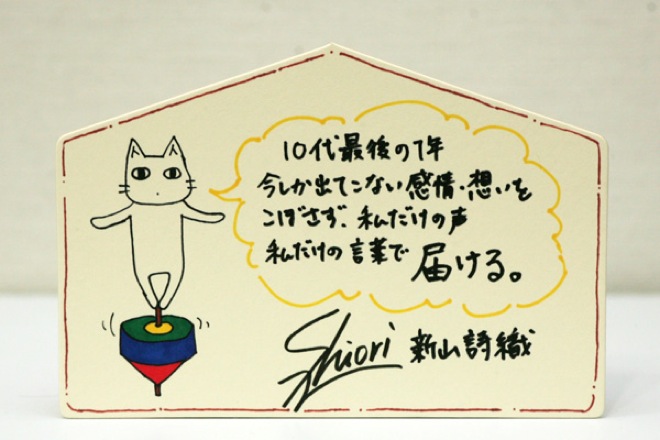 10代最後の1年
今しか出てこない感情・想いを
こぼさず、私だけの声
私だけの言葉で 届ける。
Shiori 新山詩織